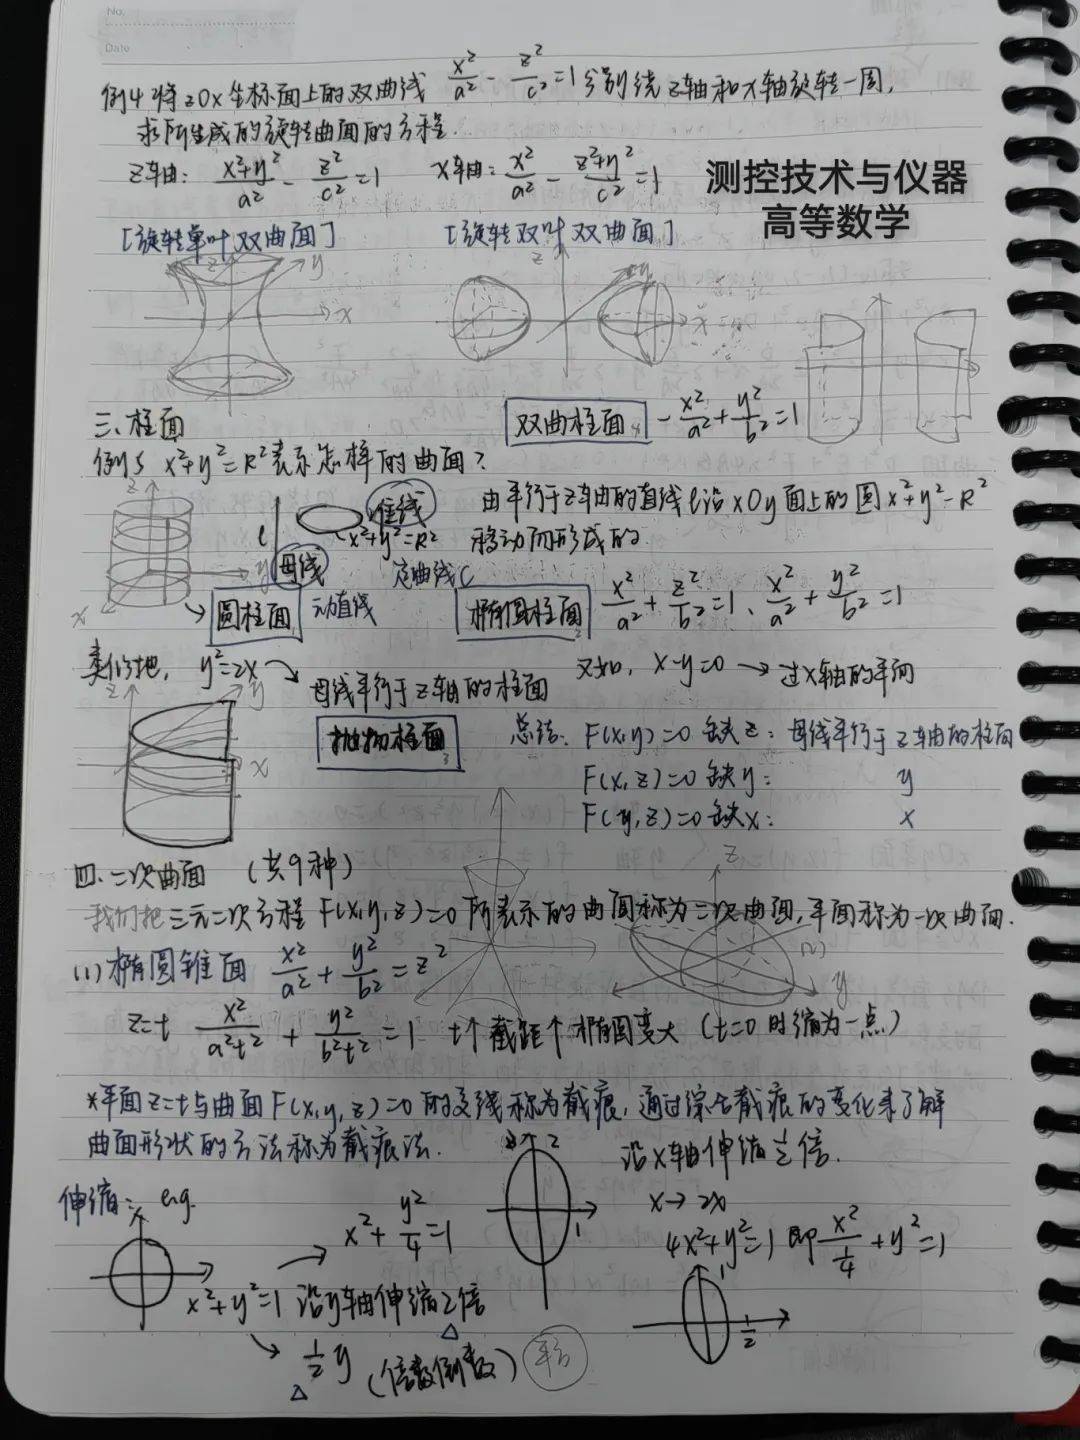 No.
Date
例4 将zOx坐标面上的双曲线 x²/a² - z²/c² = 1 分别绕z轴和x轴旋转一周,
求所生成的旋转曲面的方程.
z轴: (x²+y²)/a² - z²/c² = 1 x轴: x²/a² - (z²+y²)/c² = 1
测控技术与仪器
高等数学
[旋转单叶双曲面] [旋转双叶双曲面]
z y x
z y x
三.柱面
双曲柱面 - x²/a² + y²/b² = 1
例5 x²+y²=R²表示怎样的曲面?
z y x
l 准线 x²+y²=R²
母线 定曲线C
动直线
由平行于z轴的直线l沿xOy面上的圆x²+y²=R²
移动而形成的.
圆柱面 椭圆柱面 x²/a² + z²/b² = 1、x²/a² + y²/b² = 1
类似地, y²=2x → 母线平行于z轴的柱面
又如, x-y=0 → 过x轴的平面
z y x
抛物柱面
总结: F(x,y)=0 缺z: 母线平行于z轴的柱面
F(x,z)=0 缺y: y
F(y,z)=0 缺x: x
四.二次曲面 (共9种)
我们把三元二次方程F(x,y,z)=0所表示的曲面称为二次曲面,平面称为一次曲面.
(1)椭圆锥面 x²/a² + y²/b² = z²
z y
z=t x²/a²t² + y²/b²t² = 1 t↑ 截距↑ 椭圆变大 (t=0时缩为一点)
*平面z=t与曲面F(x,y,z)=0的交线称为截痕,通过综合截痕的变化来了解
曲面形状的方法称为截痕法.
2 1
沿x轴伸缩½倍.
伸缩: e.g.
x → 2x
x² + y²/4 = 1
4x²+y²=1 即 x²/¼ + y² = 1
x²+y²=1 沿y轴伸缩2倍
1 ½
½ y (倍数倒数)